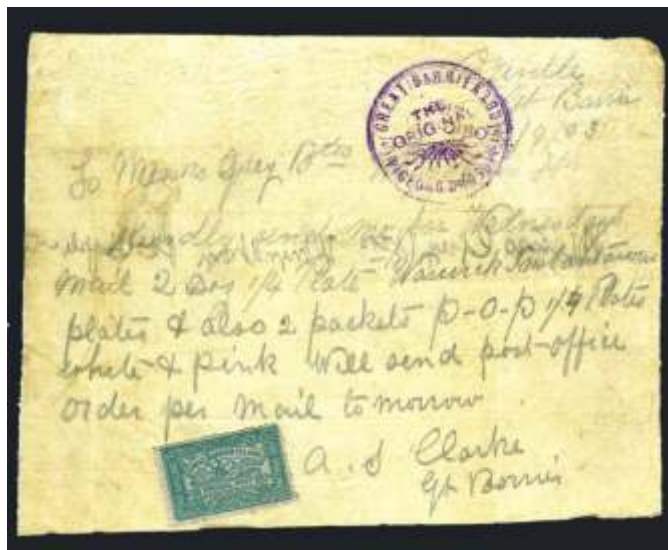 GREAT BARRIER
THE ORIGINAL
PIGEONGRAM
Gt Barrier
To Messrs Grey Bros
Kindly send me per Wednesday
Mail 2 Doz 1/4 Plate Warwick Instantaneous
plates & also 2 packets P-O-P 1/4 Plates
white & pink Will send post-office
order per mail tomorrow
A. S Clarke
Gt Barrier